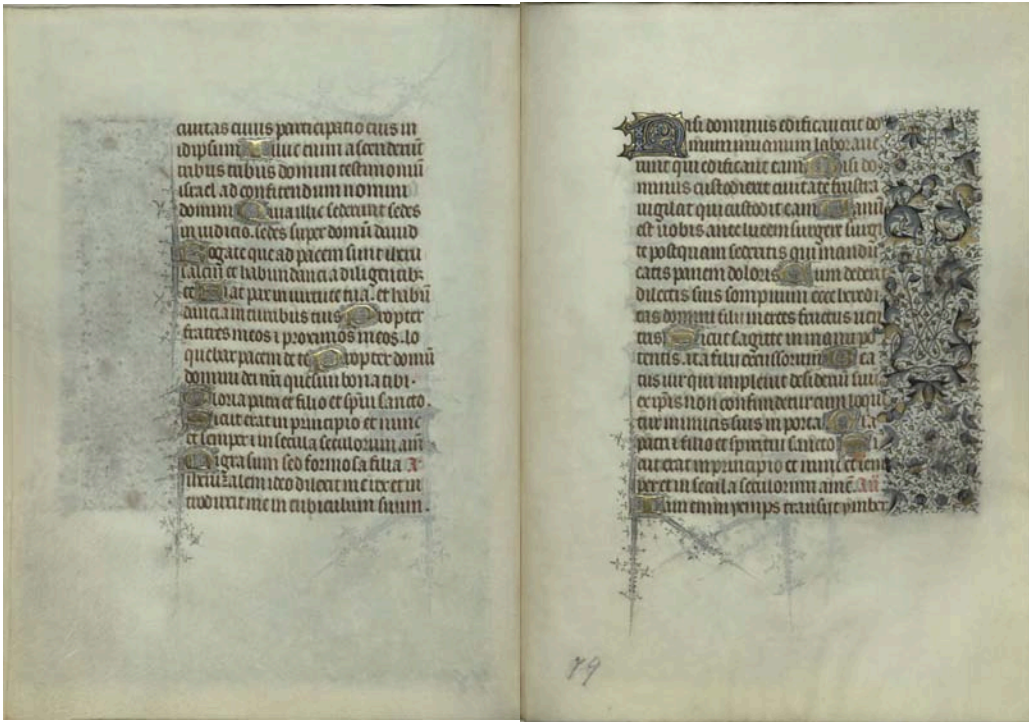 ciuitas cuius participatio eius in
idipsum Illuc enim ascenderūt
tribus tribus domini testimoniū
israel ad confitendum nomini
domini Quia illic sederunt sedes
in iudicio. sedes super domū dauid
Rogate que ad pacem sunt iheru
salem et habundancia diligentib;
te Fiat pax in uirtute tua. et habū
dancia in turribus tuis Propter
fratres meos ⁊ proximos meos. lo
quebar pacem de te Propter domū
domini dei nr̄i quesiui bona tibi.
Gloria patri et filio et spūi sancto.
Sicut erat in principio et nunc
et semper ⁊ in secula seculorum am̄
Nigra sum sed formosa filia A
iherusalem ideo dilexit me rex et in
troduxit me in cubiculum suum.
Nisi dominus edificauerit do
mum in uanum laboraue
runt qui edificant eam Nisi do
minus custodierit ciuitatē frustra
uigilat qui custodit eam Uanū
est uobis ante lucem surgere surgi
te postquam sederitis qui mandu
catis panem doloris Cum dederit
dilectis suis sompnum ecce heredi
tas domini filii merces fructus uen
tris Sicut sagitte in manu po
tentis. ita filii excussorum Bea
tus uir qui impleuit desideriū suū
ex ipsis non confundetur cum loque
tur inimicis suis in porta Gl̄ia
patri ⁊ filio et spiritui sancto Si
cut erat in principio et nunc et sem
per et in secula seculorum amē. An̄
Iam enim yemps transiit ymber
79